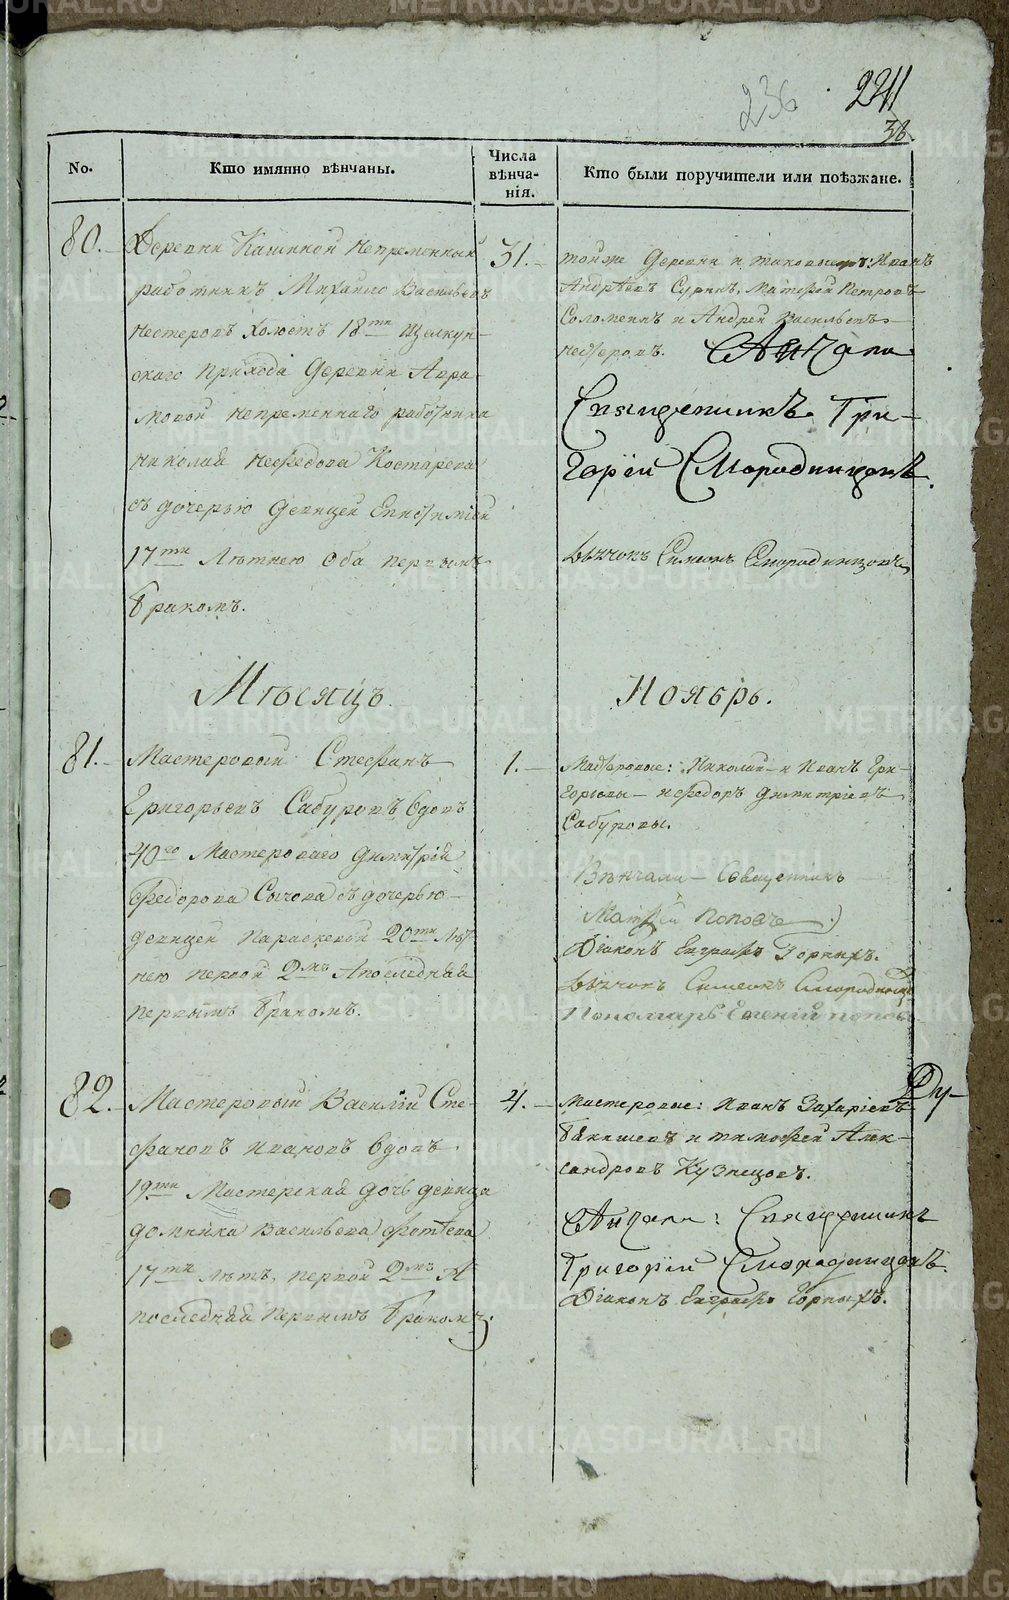 236
2211
38.
No.
Кто имянно вѣнчаны.
Числа
вѣнча-
нія.
Кто были поручители или поѣзжане.
80.
Деревни Кашиной непременный
работникъ Михайло Васильевъ
Нестеровъ холостъ 18ти Щелкун-
скаго прихода деревни Авра-
мовой непременнаго работника
Николая Нефедова Костарева
съ дочерью девицей Епистимiей
17ти Лѣтнею оба первымъ
бракомъ.
31.
тойж деревни и таковыежъ: Иванъ
Андрѣевъ Суринъ, Матфей Петровъ
Соломеинъ и Андрей Васильевъ
Нестеровъ. Вѣнчали
Священникъ Гри-
горiй Смородинцовъ.
Дьячокъ Симеонъ Смородинцовъ
Мѣсяцъ
Ноябрь.
81.
Мастеровый Стефанъ
Григорьевъ Сабуровъ вдовъ
40го Мастероваго Димитрiя
Федорова Сычева съ дочерью
девицей Параскевой 20ти Лѣт
нею первой 2мъ а последняя
первымъ бракомъ.
1.
Мастеровые: Николай и Иванъ Гри-
горьевы и Федоръ Димитрiевъ
Сабуровы.
Вѣнчали Священникъ
Матфей Поповъ
Дiаконъ Евграфъ Горныхъ.
Дьячокъ Симеонъ Смородинцовъ
Пономарь Евгенiй Поповъ
82.
Мастеровый Василiй Сте-
фановъ Ивановъ вдовъ
19ти Мастерская дочь девица
Домника Васильева Фотѣева
17ти лѣтъ, первой 2мъ а
последняя первымъ бракомъ.
4.
Мастеровые: Иванъ Захарiевъ
и Тимофей Алек-
сандровъ Кузнецовъ.
Вѣнчали: Священникъ
Григорiй Смородинцовъ.
Дiаконъ Евграфъ Горныхъ.
Ду-
METRIKI.GASO-URAL.RU